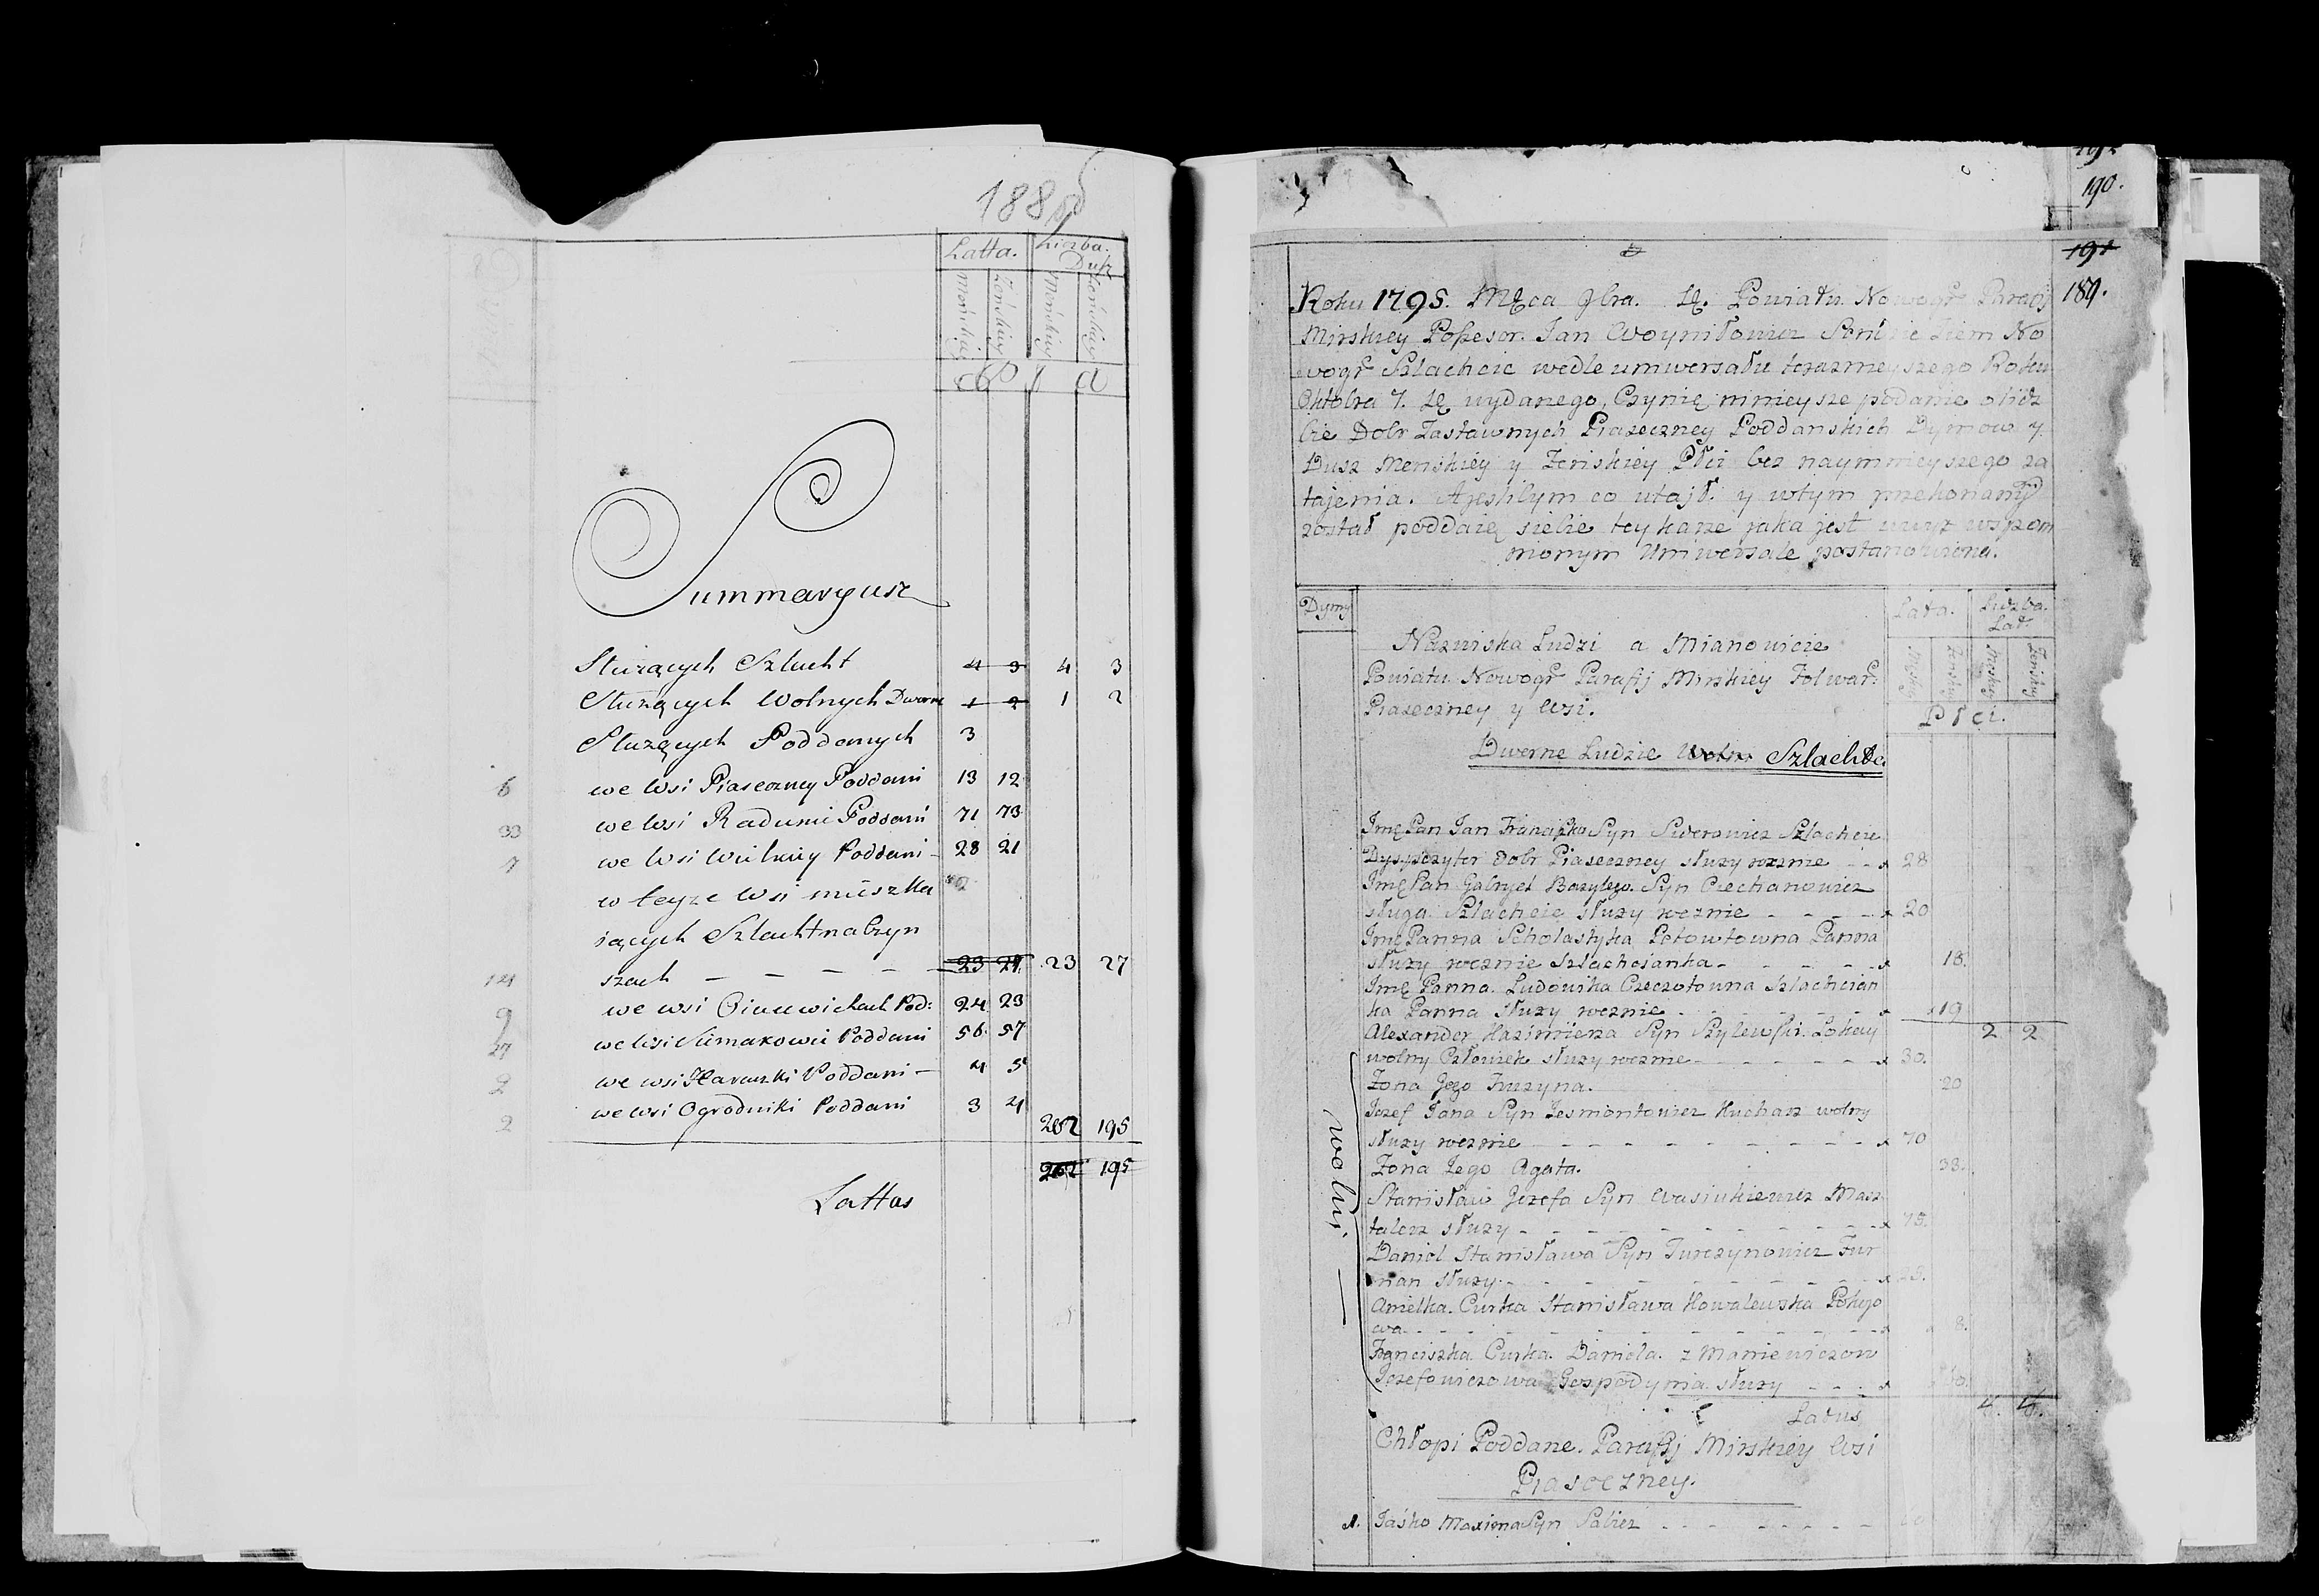 188
Latta. Liczba Dusz
Męńskiey Żeńskiey Męńskiey Żeńskiey
Summaryusz
Służących Szlacht 4 3 4 3
Służących Wolnych Dworne 1 2 1 2
Służących Poddanych 3
6 we Wsi Piaseczney Poddani 13 12
33 we Wsi Raduni Poddani 71 73
7 we Wsi Wielkiey Poddani - 28 21
w teyze Wsi mieszka
iących Szlacht na Czyn
14 szach - - - - - 23 27 23 27
9 we wsi Pod: 24 23
27 we Wsi Simakowie Poddani 56 57
2 we wsi Harauzki Poddani - 4 5
2 we Wsi Ogrodniki Poddani 3 4
202 195
202 195
Lattas
190.
191
189.
Roku 1795. Męca 9bra. Powiatu Nowogr Parafij
Mirskiey Poßesor. Jan Woyniłowicz Ziem No
wogr Szlachcic wedle uniwersału terazmieyszego Roku
Oktobra 7. wydanego, Czynię mnieysze podanie o licz
bie Dobr Zastawnych Piaseczney Poddanskich Dymow y
Dusz Menskiey y Zenskiey Płci bez naymnieyszego za
tajenia. A jeslibym co utaił y wtym przekonany
został poddaię siebie tey karze jaka jest wyż wspom
nionym Uniwersale postanowiona.
Dymy
Lata. Liczba Lat.
Męskiey Żenskiey Męskiey Żenskiey
Płci.
Nazwiska Ludzi a Mianowicie
Powiatu Nowogr Parafij Mirskiey Folwar:
Piaseczney y Wsi.
Dworne Ludzie Wolne Szlachta
Imę Pan Jan Franciszka Syn Siverowicz Szlachcic
Dyspozytor Dobr Piaseczney służy rocznie - - 28
Imę Pan Gabryel Bazylego Syn Ciechanowicz
sługa Szlachcic służy rocznie - - - - 20
Imę Panna Scholastyka Petowtowna Panna
służy rocznie Szlachcianka - - - - - 18.
Imę Panna Ludowika Czeczotowna Szlachcian
ka Panna służy rocznie - - - - - - 19
2 2
Alexander Kazimierza Syn Szylewski Lokay
wolny Człowiek służy rocznie - - - - - 30.
Zona Jego Fruzyna. 20
Jozef Jana Syn Jesmontowicz Kucharz wolny
służy rocznie - - - - - - - - - - 70
Zona Jego Agata. 33.
Stanisław Jozefa Syn Wasiukiewicz Masz
talerz służy - - - - - - - - - - 75.
Daniel Stanisława Syn Jurczynowicz Fur
man służy - - - - - - - - - - 23.
Anielka Curka Stanisława Kowalewska Pokojo
wa - - - - - - - - - - - - 8.
Franciszka Curka Daniela z Maniewiczow
Jozefowiczowa Gospodynia służy - - - -
wolni
Latus 4. 4.
Chłopi Poddane Parafij Mirskiey Wsi
Piaseczney.
1. Jaśko Maxima Syn Sabicz - - - - - -